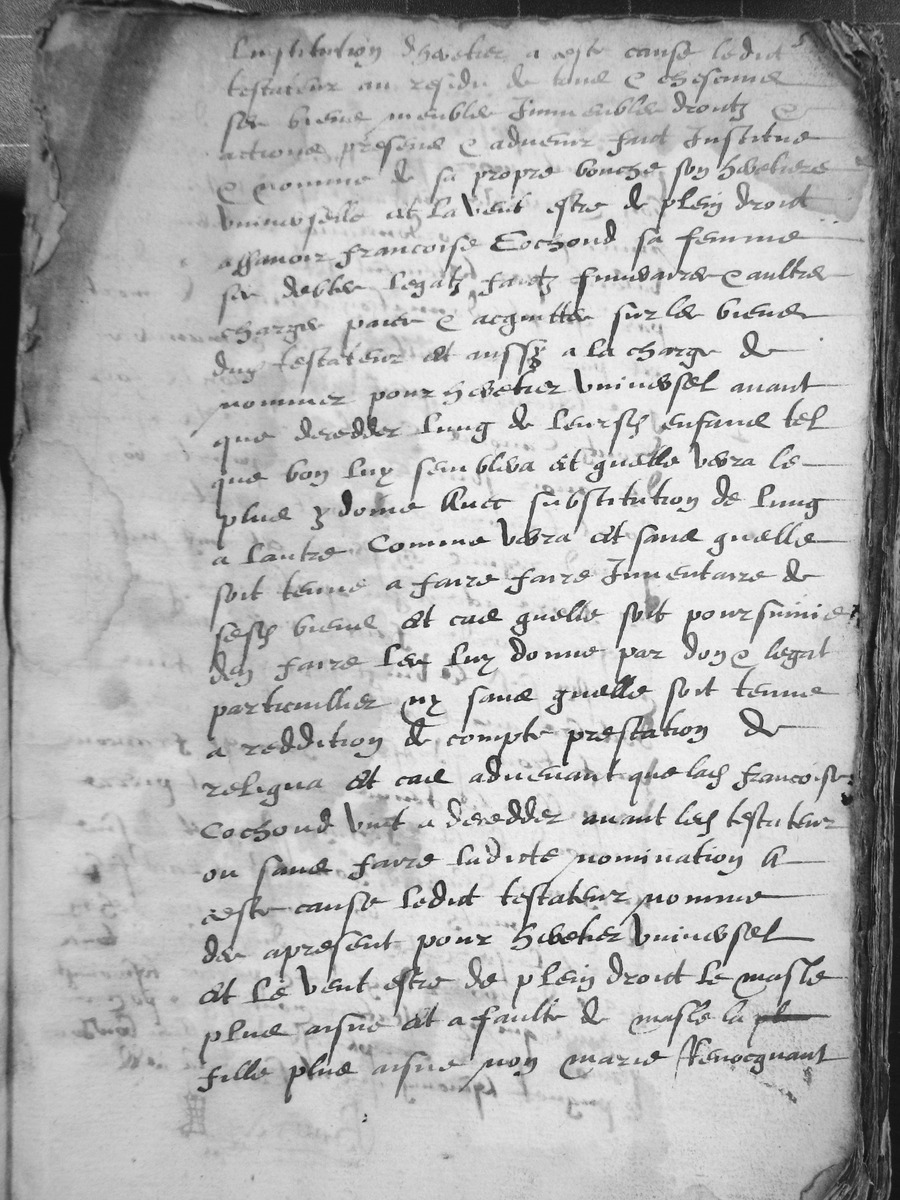 Linstitution dheretier a ceste cause ledict
testateur au residu de tous & chescunes
ses biens meubles Immeubles droictz &
actions presens & advenir faict Institue
& nomme de sa propre bouche son heretiere
universelle et la veut estre de plein droict
assavoir francoise Cochond sa femme
ses debtes legatz faictz funeraires & aultres
charges paies & acquittes sur les biens
duy testateur et aussy a la charge de
nommer pour heretier universel avant
que deredder lung de leursd enfans tel
que bon luy semblera et quelle verra le
plus ydoine Avec substitution de lung
a lautre Comme verra et sans quelle
soit tenue a faire faire Inventaire de
sesd biens et cas quelle soit poursuivie
den faire les luy donne par don & legat
particullier ny sans quelle soit tenue
a reddition de compte prestation de
reliqua et cas advenant que lad francoise
Cochond vint a deredder avant led testateur
ou sans faire ladicte nomination A
ceste cause ledict testateur nomme
des apresent pour heretier universel
et le veut estre de plein droict le masle
plus aisne et a faulte de masle la
fille plus aisne non marie